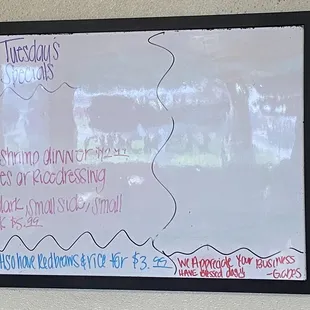 Tuesday's
Specials
shrimp dinner
es or Rice dressing
dark, small side, small
k $5.99
Also have Red beans & rice for $3.99
We Appreciate Your Business
HAVE Blessed day's
-Gabes